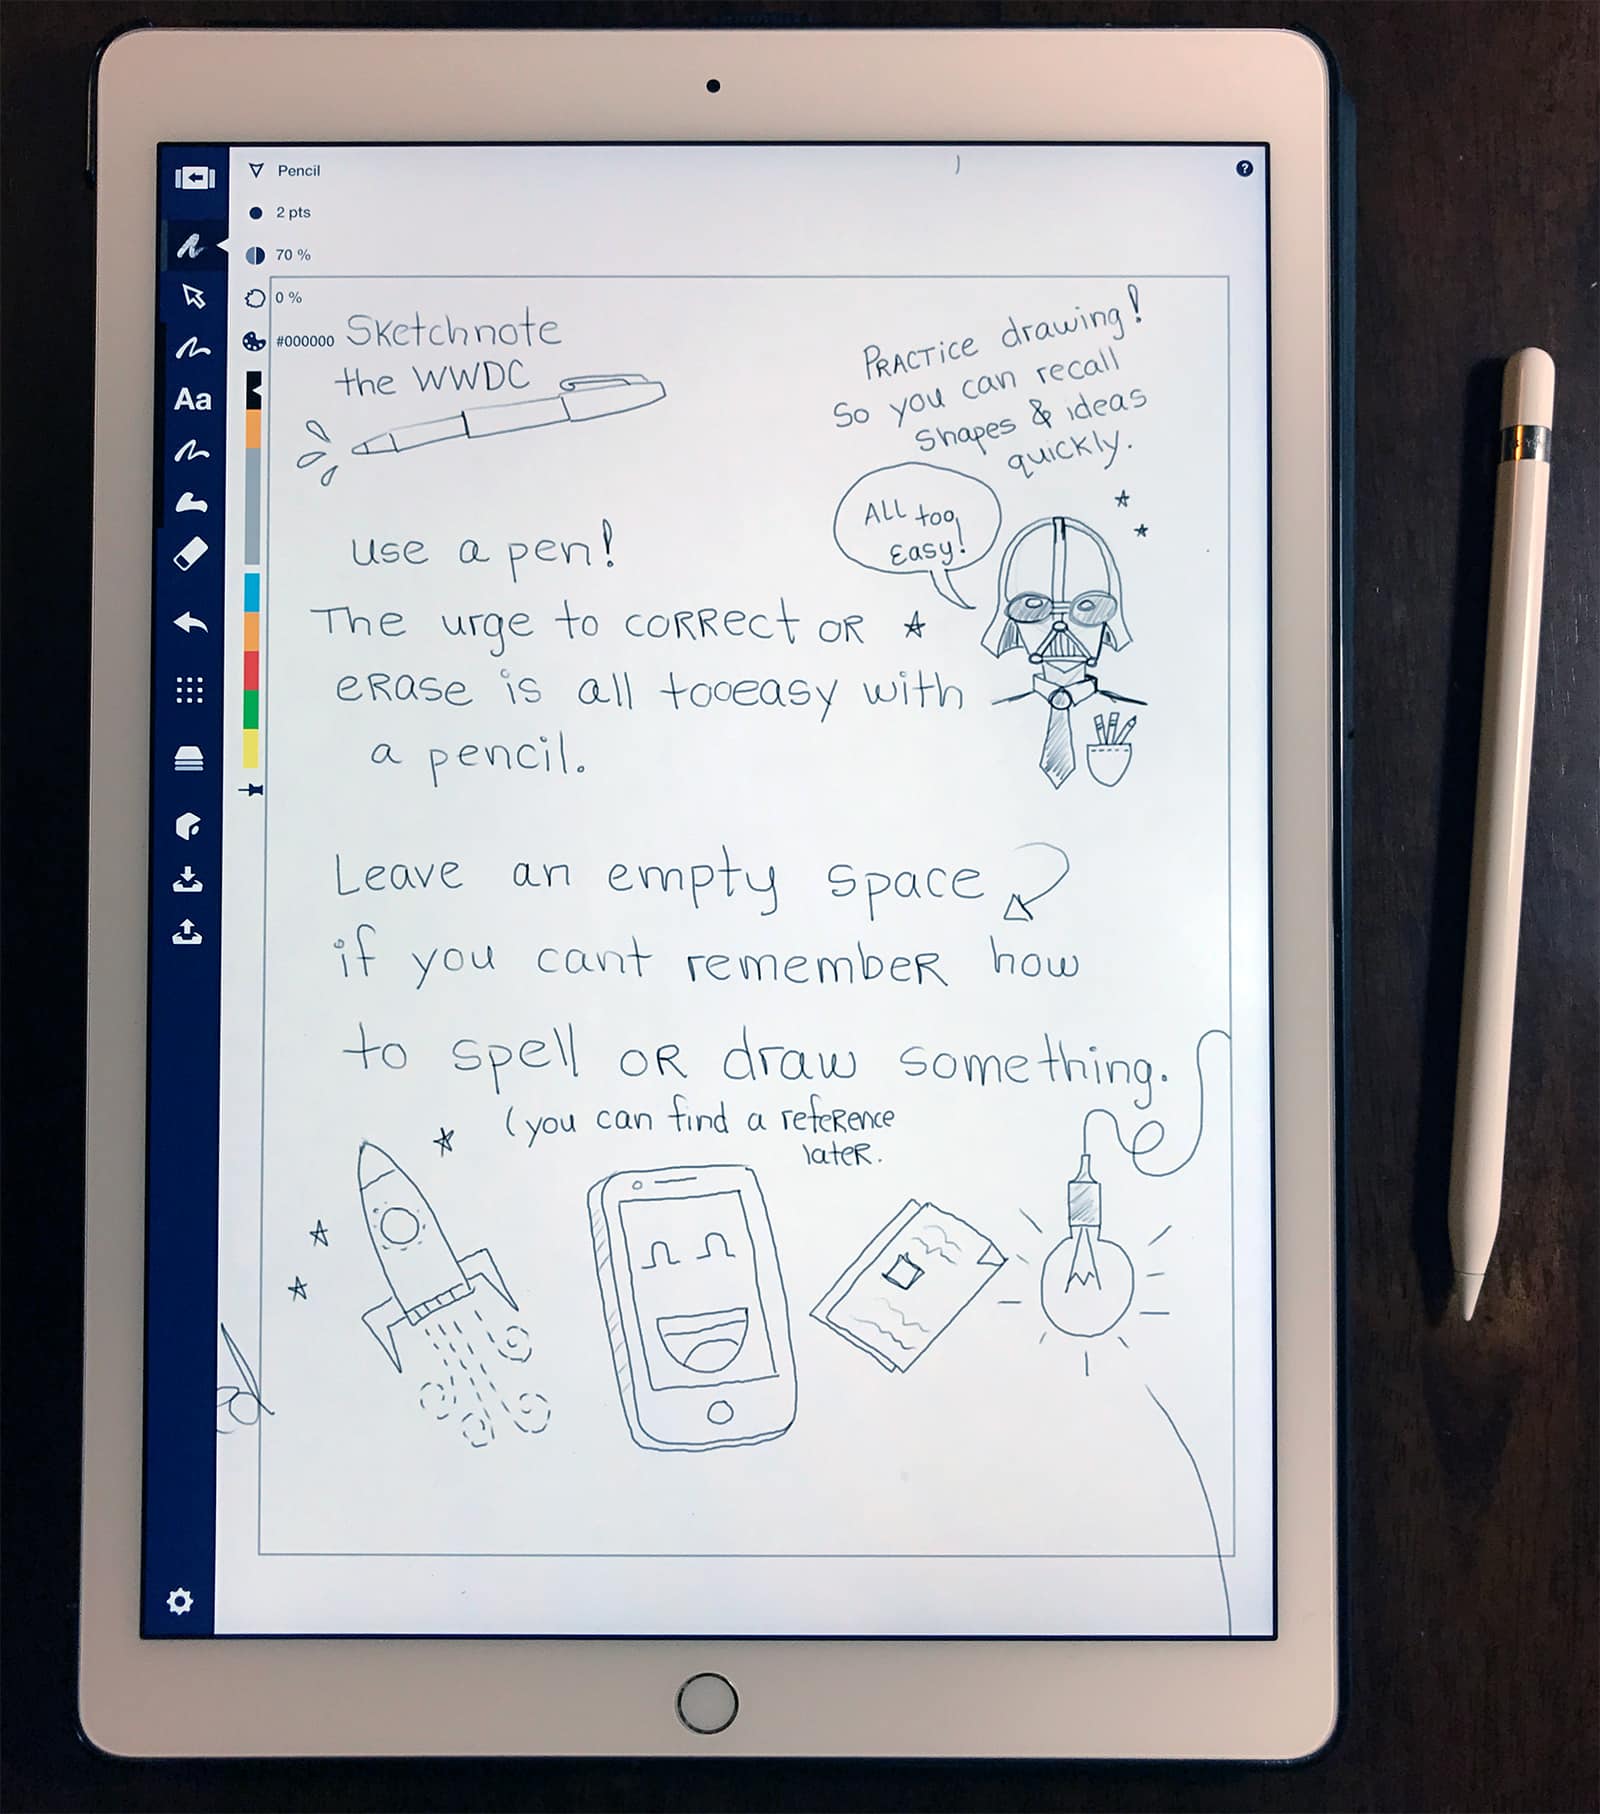 Pencil
2 pts
70 %
0 %
#000000
Aa
?
Sketchnote
the WWDC
PRACTice drawing!
So you can recall
Shapes & ideas
quickly.
ALL too
Easy!
use a pen!
The urge to coRRect OR
eRase is all tooeasy with
a pencil.
Leave an empty space
if you cant remembeR how
to spell OR draw something.
(you can find a refeRence
lateR.